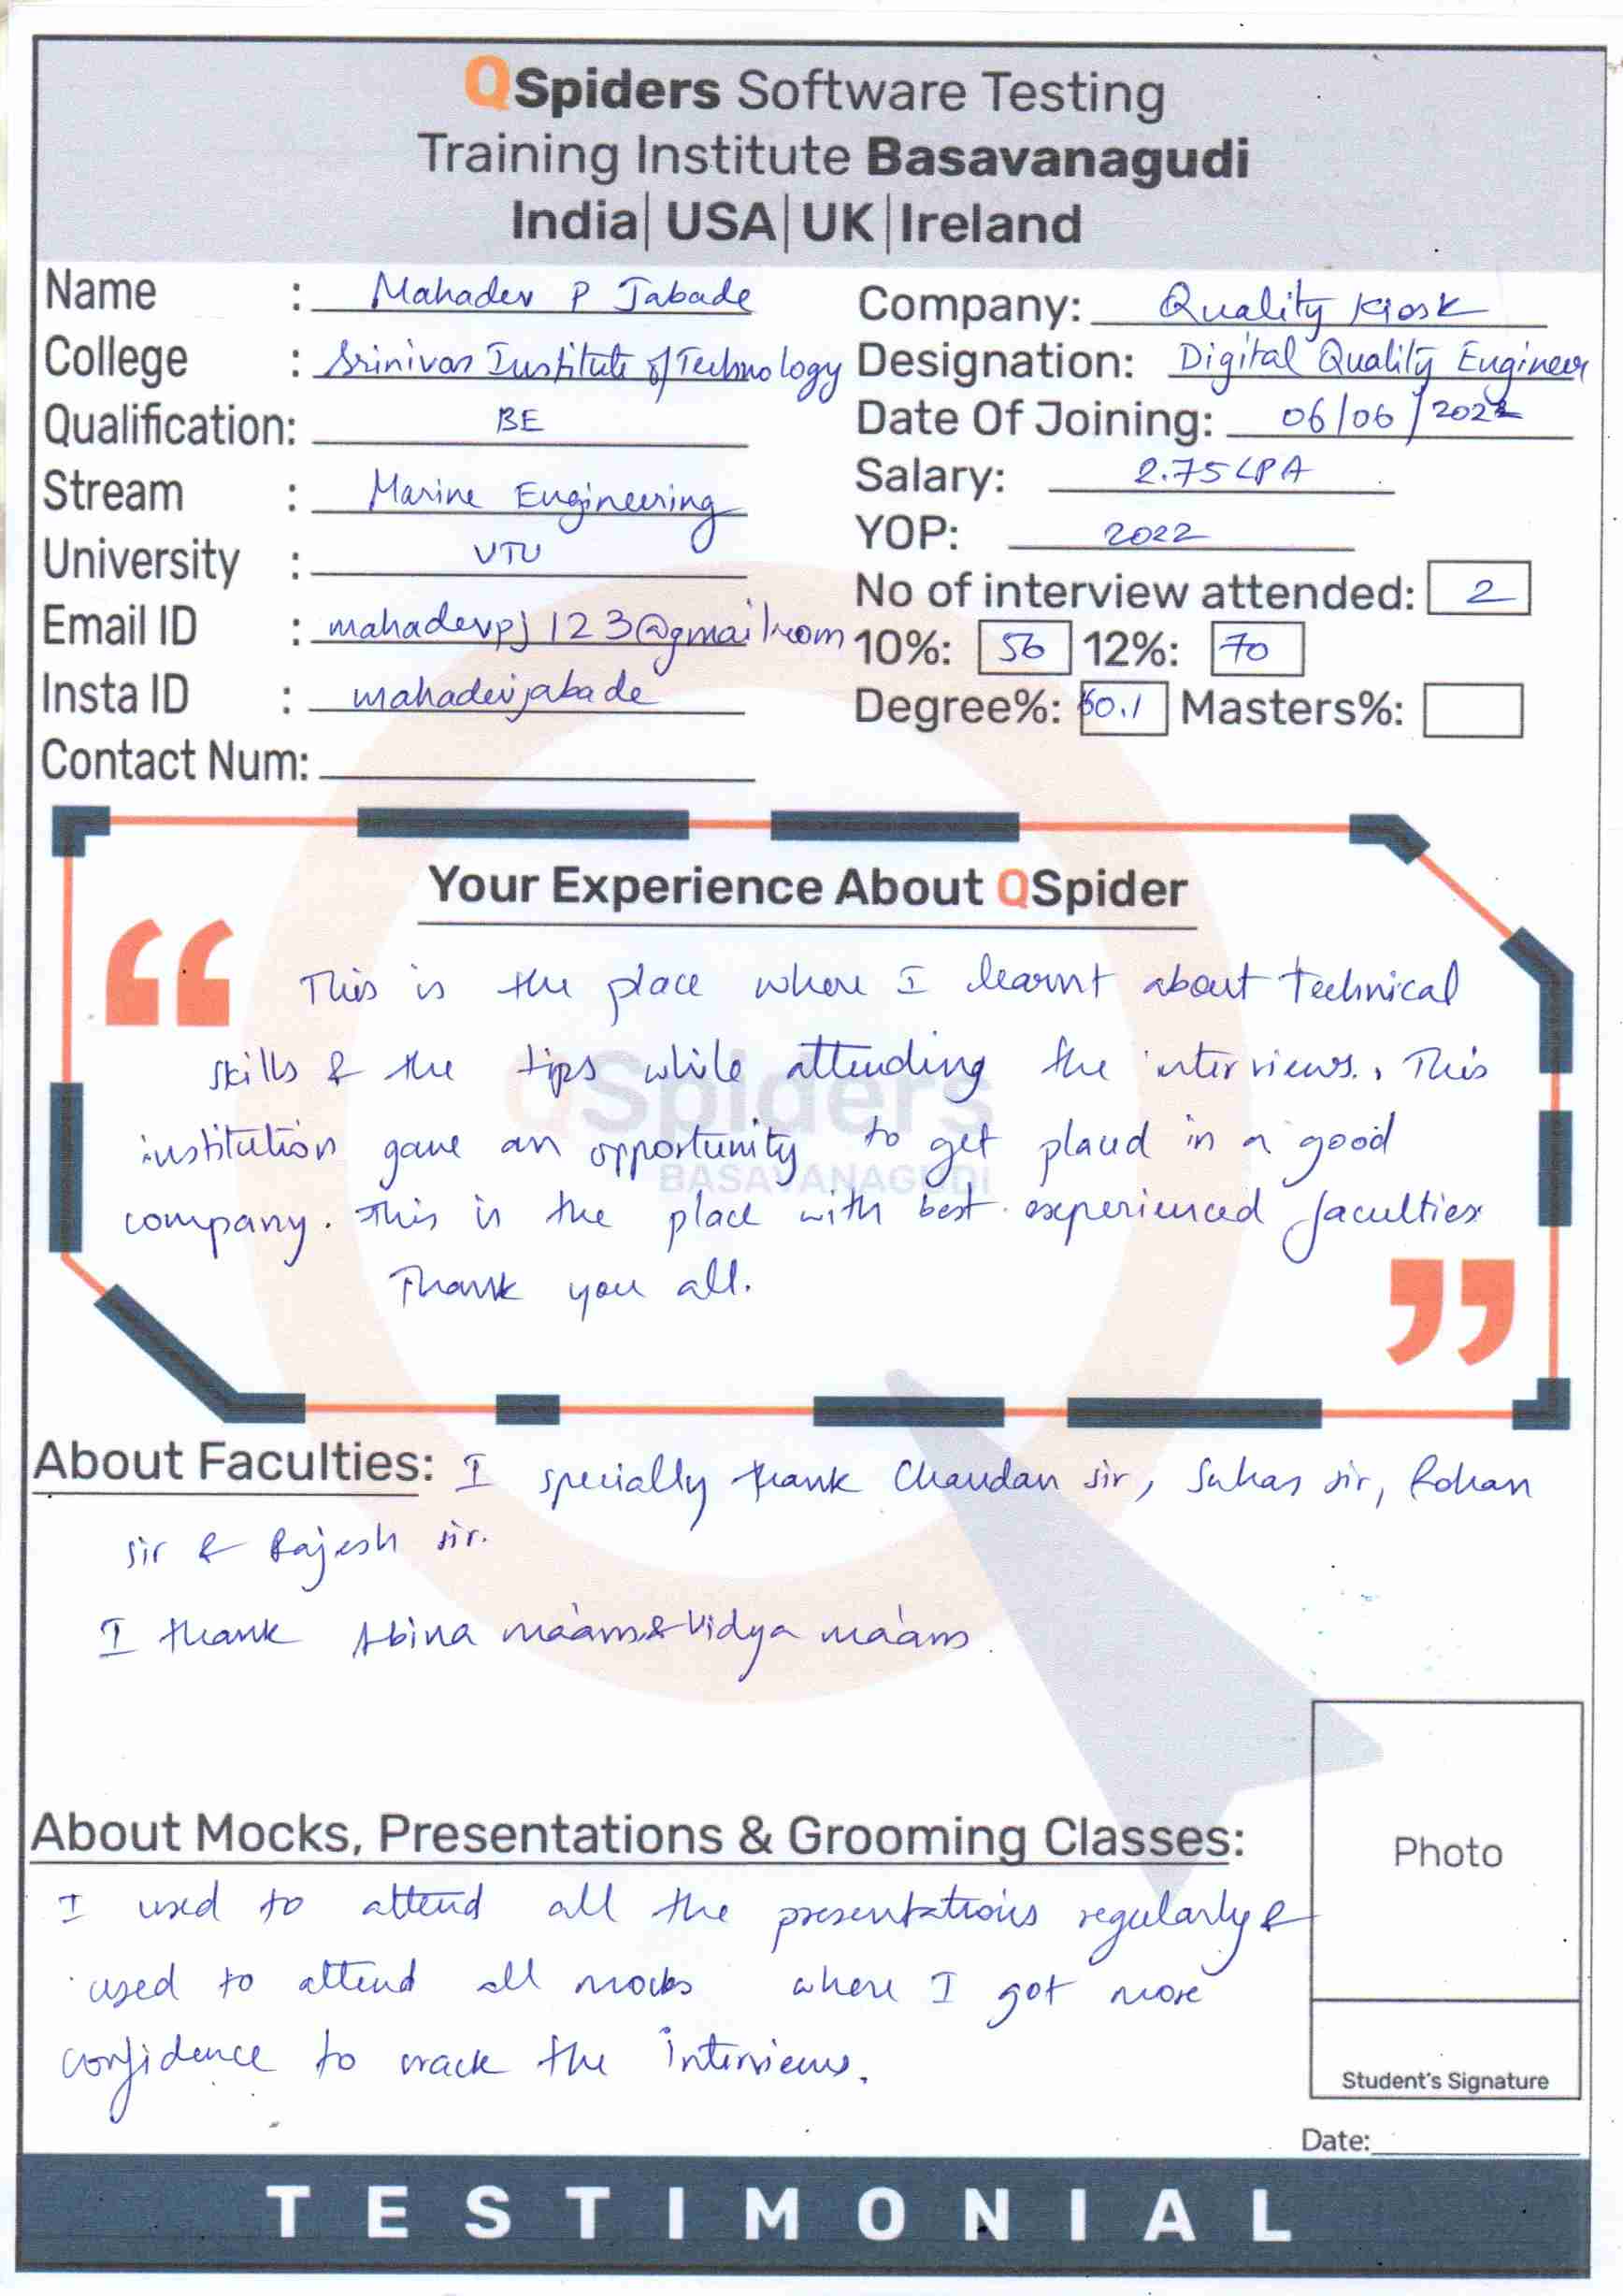 QSpiders Software Testing
Training Institute Basavanagudi
India| USA| UK| Ireland
Name : Mahadev P Jabade
College : Srinivas Institute of Technology
Qualification: BE
Stream : Marine Engineering
University : VTU
Email ID : mahadevpj123@gmail.com
Insta ID : mahadevjabade
Contact Num:
Company: Quality Kiosk
Designation: Digital Quality Engineer
Date Of Joining: 06/06/2022
Salary: 2.75 LPA
YOP: 2022
No of interview attended: 2
10%: 56 12%: 70
Degree%: 60.1 Masters%:
Your Experience About QSpider
“
This is the place where I learnt about technical
skills & the tips while attending the interviews. This
institution gave an opportunity to get placed in a good
company. This is the place with best experienced faculties
Thank you all.
”
QSpiders
BASAVANAGUDI
About Faculties: I specially thank Chandan sir, Suhas sir, Rohan
sir & Rajesh sir.
I thank Abina ma'am & Vidya ma'am.
About Mocks, Presentations & Grooming Classes:
I used to attend all the presentations regularly &
used to attend all mocks where I got more
confidence to crack the interviews.
Photo
Student's Signature
Date:
TESTIMONIAL